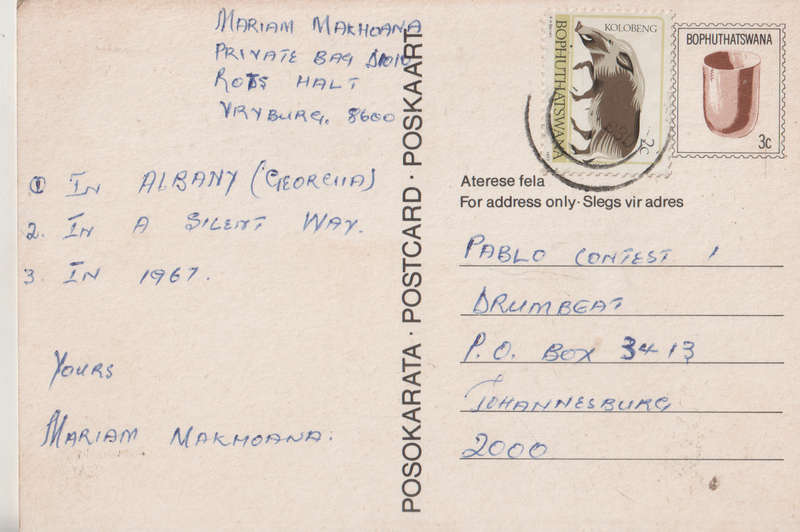 MARIAM MAKHOANA
PRIVATE BAG
HALT
VRYBURG, 8600
① IN ALBANY (GEORGIA)
2. IN A SILENT WAY.
3. IN 1967.
YOURS
MARIAM MAKHOANA.
POSOKARATA · POSTCARD · POSKAART
KOLOBENG
BOPHUTHATSWANA
2c
BOPHUTHATSWANA
3c
Aterese fela
For address only · Slegs vir adres
PABLO CONTEST 1
DRUMBEAT
P.O. BOX 3413
JOHANNESBURG
2000